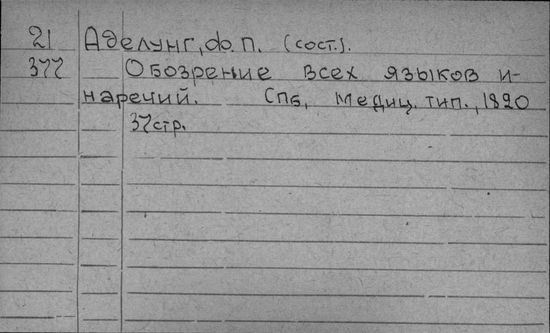 21 Аделунг, Ф. П. (сост.).
377 Обозрение всех языков и
наречий. Спб, Медиц. тип., 1820
37 стр.